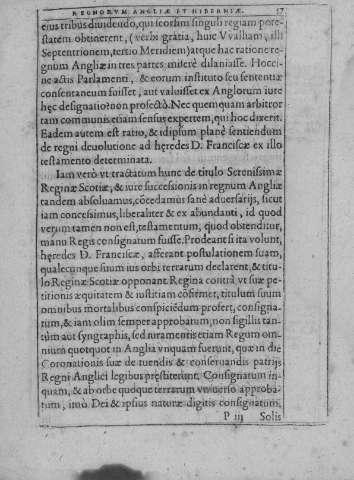 REGNORVM ANGLIÆ ET HIBERNIÆ. 57
eius tribus diuidendo, qui seorsim singuli regiam pote-
statem obtinerent, (verbi gratia, huic VValliam, illi
Septentrionem, tertio Meridiem) atque hac ratione re-
gnum Angliæ in tres partes miserè dilaniasse. Hocci-
ne actis Parlamenti, & eorum instituto seu sententiæ
consentaneum fuisset, aut valuisset ex Anglorum iure
hęc designatio? non profectò. Nec quemquam arbitror
tam communis etiam sensus expertem, qui hoc dixerit.
Eadem autem est ratio, & idipsum planè sentiendum
de regni deuolutione ad hęredes D. Franciscæ ex illo
testamento determinata.
Iam verò vt tractatum hunc de titulo Serenissimæ
Reginæ Scotiæ, & iure successionis in regnum Angliæ
tandem absoluamus, cōcedamus sanè aduersarijs, sicut
iam concessimus, liberaliter & ex abundanti, id quod
verum tamen non est, testamentum, quod obtenditur,
manu Regis consignatum fuisse. Prodeant si ita volunt,
hęredes D. Franciscæ, afferant postulationem suam,
qualecunque suum ius orbi terrarum declarent, & titu-
lo Reginæ Scotiæ opponant. Regina contrà vt suæ pe-
titionis æquitatem & iustitiam cōfirmet, titulum suum
omnibus mortalibus conspiciēdum profert, consigna-
tum, & iam olim semper approbatum, non sigillis tan-
tùm aut syngraphis, sed iuramentis etiam Regum om-
nium quotquot in Anglia vnquam fuerunt, quæ in die
Coronationis suæ de tuendis & conseruandis patrijs
Regni Anglici legibus pręstiterunt. Consignatum in-
quam, & ab orbe quoque terrarum vniuerso approba-
tum, imò Dei & ipsius naturæ digitis consignatum.
P iij Solis